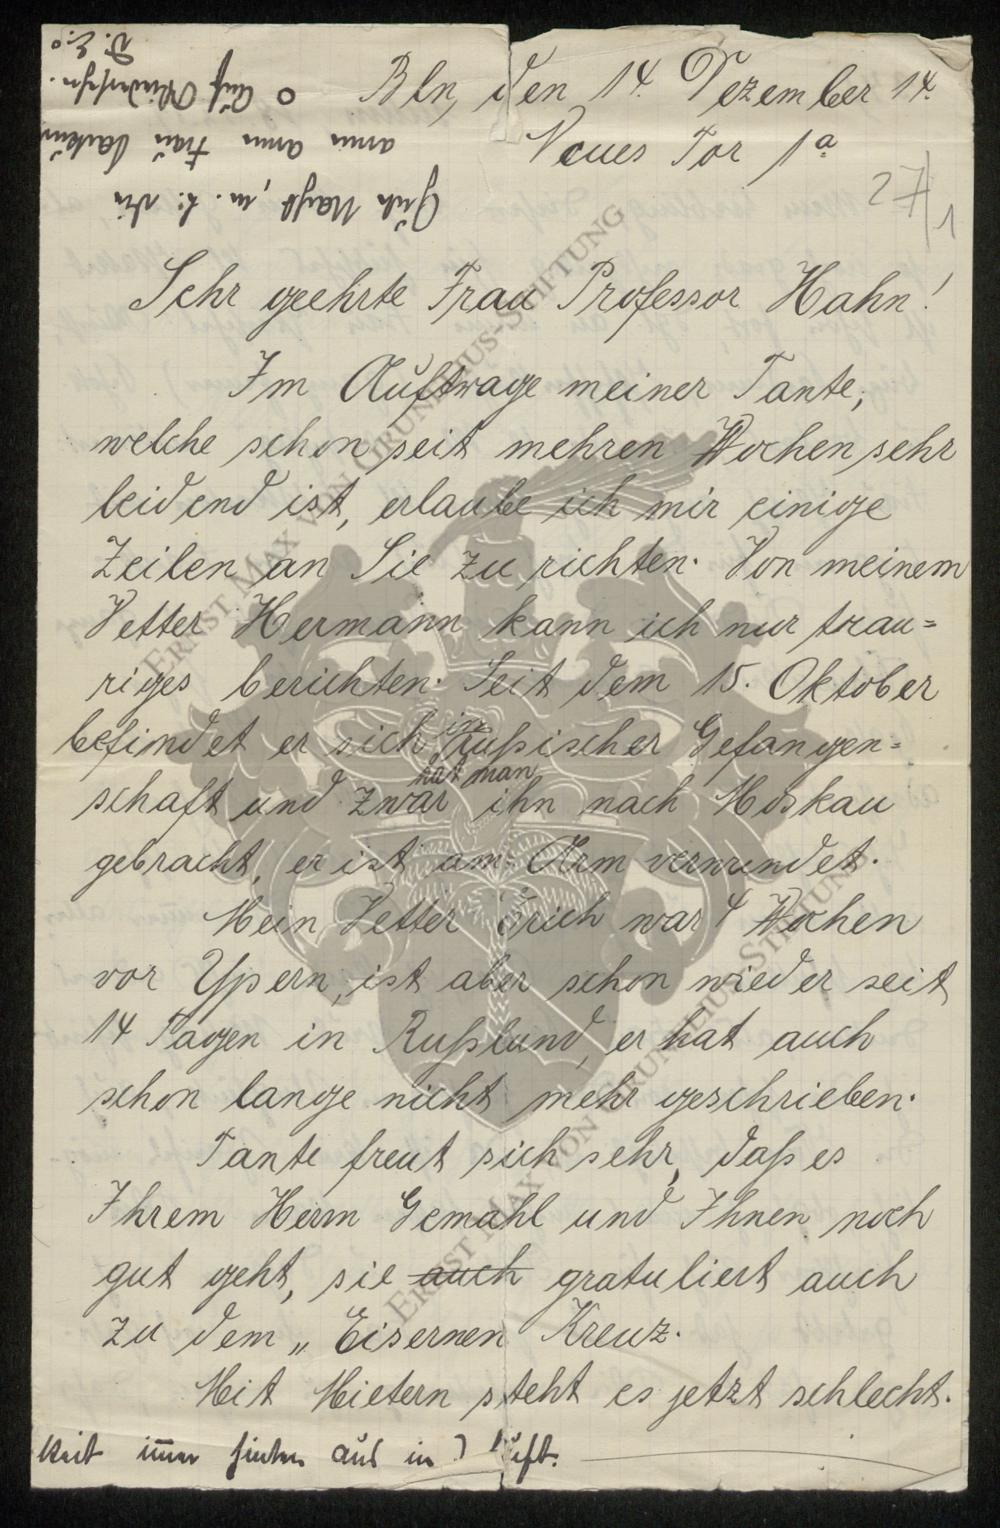 Bln, den 14. Dezember 14.
Neues Tor 1a
27/1
Sehr geehrte Frau Professor Hahn!
Im Auftrage meiner Tante,
welche schon seit mehren Wochen sehr
leidend ist, erlaube ich mir einige
Zeilen an Sie zu richten. Von meinem
Vetter Hermann kann ich nur trau=
riges berichten. Seit dem 15. Oktober
befindet er sich in Rußischer Gefangen=
schaft und zwar hat man ihn nach Moskau
gebracht, er ist am Arm verwundet.
Mein Vetter Erich war 4 Wochen
vor Ypern, ist aber schon wieder seit
14 Tagen in Rußland, er hat auch
schon lange nicht mehr geschrieben.
Tante freut sich sehr, daß es
Ihrem Herrn Gemahl und Ihnen noch
gut geht, sie auch gratuliert auch
zu dem „Eisernen Kreuz.
Mit Mietern steht es jetzt schlecht.
aus in
Gute Nacht, m. l.
arm arm Frau
Auf Wiedersehn.
D. E.
ERNST MAX VON GRUNELIUS-STIFTUNG
ERNST MAX VON GRUNELIUS-STIFTUNG